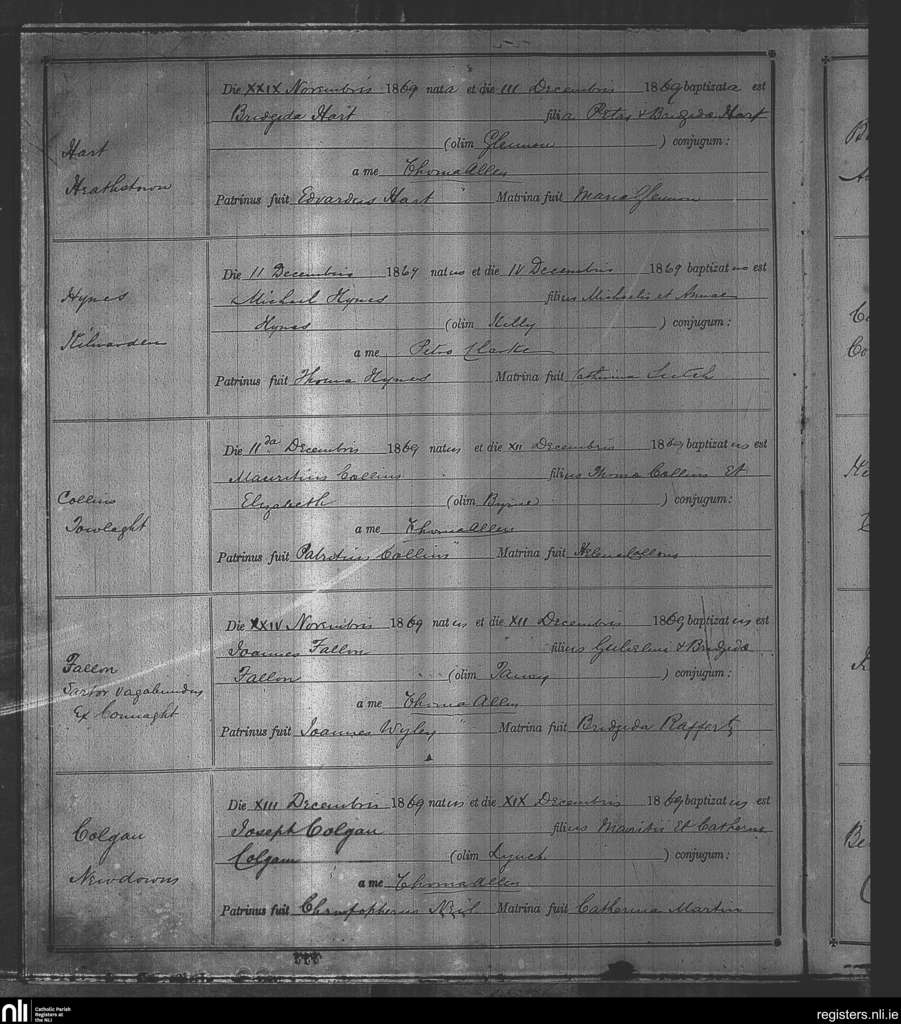 Hart
Heathstown
Die XXIX Novembris 1869 nata et die III Decembris 1869 baptizata est
Bridgida Hart filia Petri & Bridgida Hart
(olim Glennon ) conjugum:
a me Thoma Allen
Patrinus fuit Edvardus Hart Matrina fuit Maria Glennon
Hynes
Kilwarden
Die 11 Decembris 1869 natus et die IV Decembris 1869 baptizatus est
Michael Hynes filius Michaelis et Annae
Hynes (olim Killy ) conjugum:
a me Petro Clarke
Patrinus fuit Thoma Hynes Matrina fuit
Collins
Towlaght
Die 11da Decembris 1869 natus et die XII Decembris 1869 baptizatus est
Mauritius Collins filius Thoma Collins Et
Elizabeth (olim Byrne ) conjugum:
a me Thoma Allen
Patrinus fuit Patritius Collins Matrina fuit Helena Collons
Fallon
Sartor vagabundus
Ex Connaght
Die XXIV Novembris 1869 natus et die XII Decembris 1869 baptizatus est
Joannes Fallon filius Gulielmi & Bridgidae
Fallon (olim ) conjugum:
a me Thoma Allen
Patrinus fuit Joannes Wyley Matrina fuit Bridgida Rafferty
Colgan
Newdowns
Die XIII Decembris 1869 natus et die XIX Decembris 1869 baptizatus est
Joseph Colgan filius Mauritii Et Catherine
Colgan (olim Lynch ) conjugum:
a me Thoma Allen
Patrinus fuit Christopherus Neil Matrina fuit Catherina Martin
nli Catholic Parish
Registers at
the NLI
registers.nli.ie